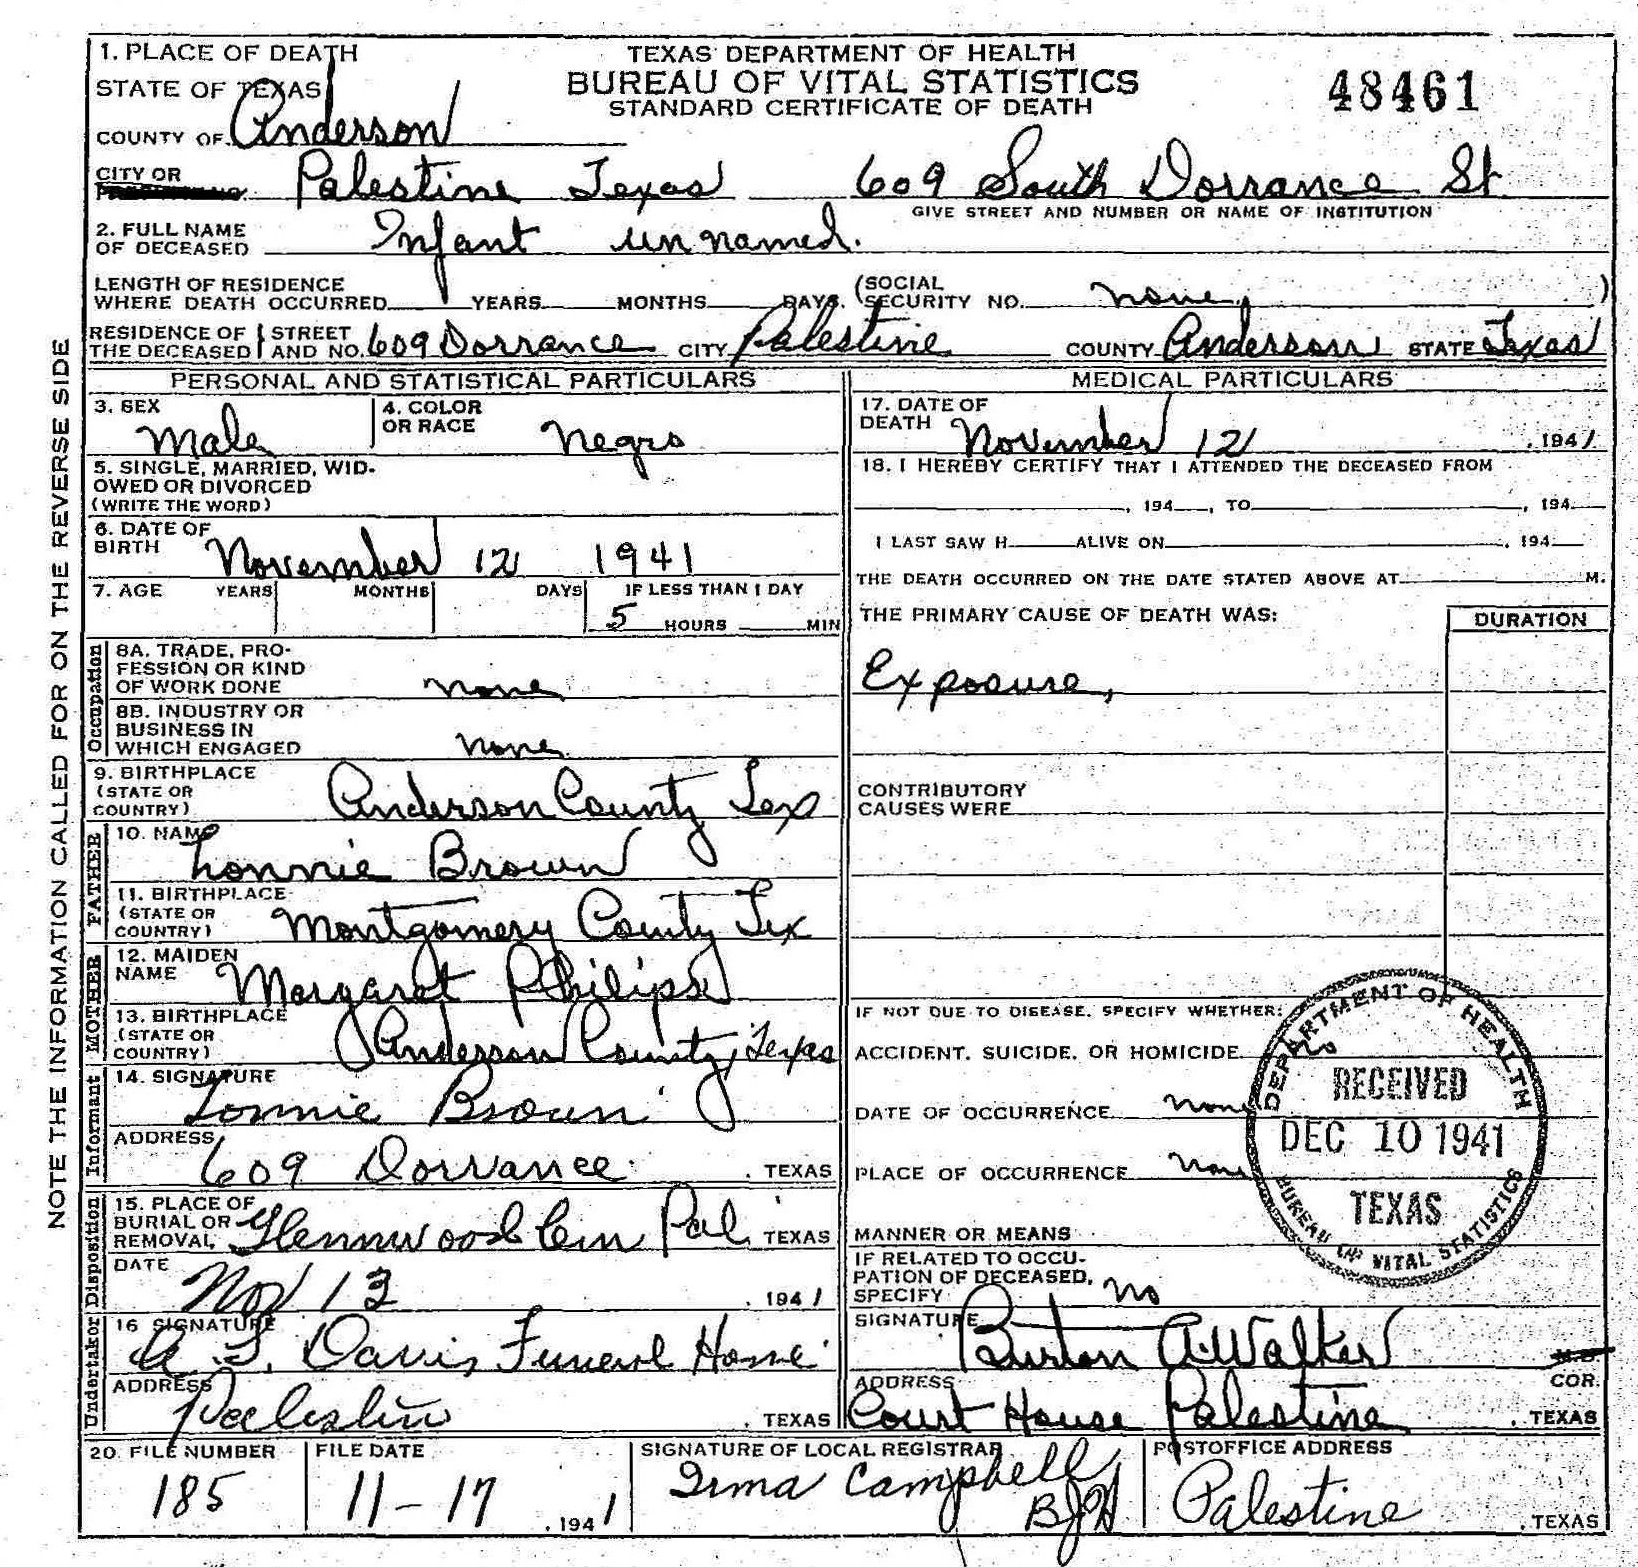 1. PLACE OF DEATH
TEXAS DEPARTMENT OF HEALTH
STATE OF TEXAS
BUREAU OF VITAL STATISTICS
48461
STANDARD CERTIFICATE OF DEATH
COUNTY OF Anderson
CITY OR Palestine Texas 609 South Dorrance St
GIVE STREET AND NUMBER OR NAME OF INSTITUTION
2. FULL NAME
OF DECEASED Infant unnamed.
LENGTH OF RESIDENCE
WHERE DEATH OCCURRED YEARS MONTHS DAYS. (SOCIAL
SECURITY NO. none )
RESIDENCE OF STREET
THE DECEASED AND NO. 609 Dorrance CITY Palestine COUNTY Anderson STATE Texas
NOTE THE INFORMATION CALLED FOR ON THE REVERSE SIDE
PERSONAL AND STATISTICAL PARTICULARS
3. SEX Male
4. COLOR
OR RACE Negro
5. SINGLE, MARRIED, WID-
OWED OR DIVORCED
(WRITE THE WORD)
6. DATE OF
BIRTH November 12 1941
7. AGE YEARS MONTHS DAYS IF LESS THAN 1 DAY
5 HOURS MIN
Occupation
8A. TRADE, PRO-
FESSION OR KIND
OF WORK DONE none
8B. INDUSTRY OR
BUSINESS IN
WHICH ENGAGED none
9. BIRTHPLACE
(STATE OR
COUNTRY) Anderson County Tex
FATHER
10. NAME Lonnie Brown
11. BIRTHPLACE
(STATE OR
COUNTRY) Montgomery County Tex
MOTHER
12. MAIDEN
NAME Margaret Philips
13. BIRTHPLACE
(STATE OR
COUNTRY) Anderson County, Texas
Informant
14. SIGNATURE Lonnie Brown
ADDRESS 609 Dorrance, TEXAS
Disposition
15. PLACE OF
BURIAL OR
REMOVAL Glennwood Cem Pal TEXAS
DATE Nov 13, 1941
Undertaker
16 SIGNATURE A. L. Davis Funeral Home
ADDRESS Palestine, TEXAS
MEDICAL PARTICULARS
17. DATE OF
DEATH November 12, 1941
18. I HEREBY CERTIFY THAT I ATTENDED THE DECEASED FROM
, 194 , TO , 194
I LAST SAW H ALIVE ON , 194
THE DEATH OCCURRED ON THE DATE STATED ABOVE AT M.
THE PRIMARY CAUSE OF DEATH WAS: DURATION
Exposure,
CONTRIBUTORY
CAUSES WERE
IF NOT DUE TO DISEASE, SPECIFY WHETHER:
ACCIDENT, SUICIDE, OR HOMICIDE no
DATE OF OCCURRENCE none
PLACE OF OCCURRENCE none
MANNER OR MEANS
IF RELATED TO OCCU-
PATION OF DECEASED,
SPECIFY no
SIGNATURE Burton A. Walker M.D.
COR.
ADDRESS Court House Palestine, TEXAS
DEPARTMENT OF HEALTH
RECEIVED
DEC 10 1941
TEXAS
BUREAU OF VITAL STATISTICS
20. FILE NUMBER FILE DATE SIGNATURE OF LOCAL REGISTRAR POSTOFFICE ADDRESS
185 11-17, 1941 Irma Campbell Palestine, TEXAS